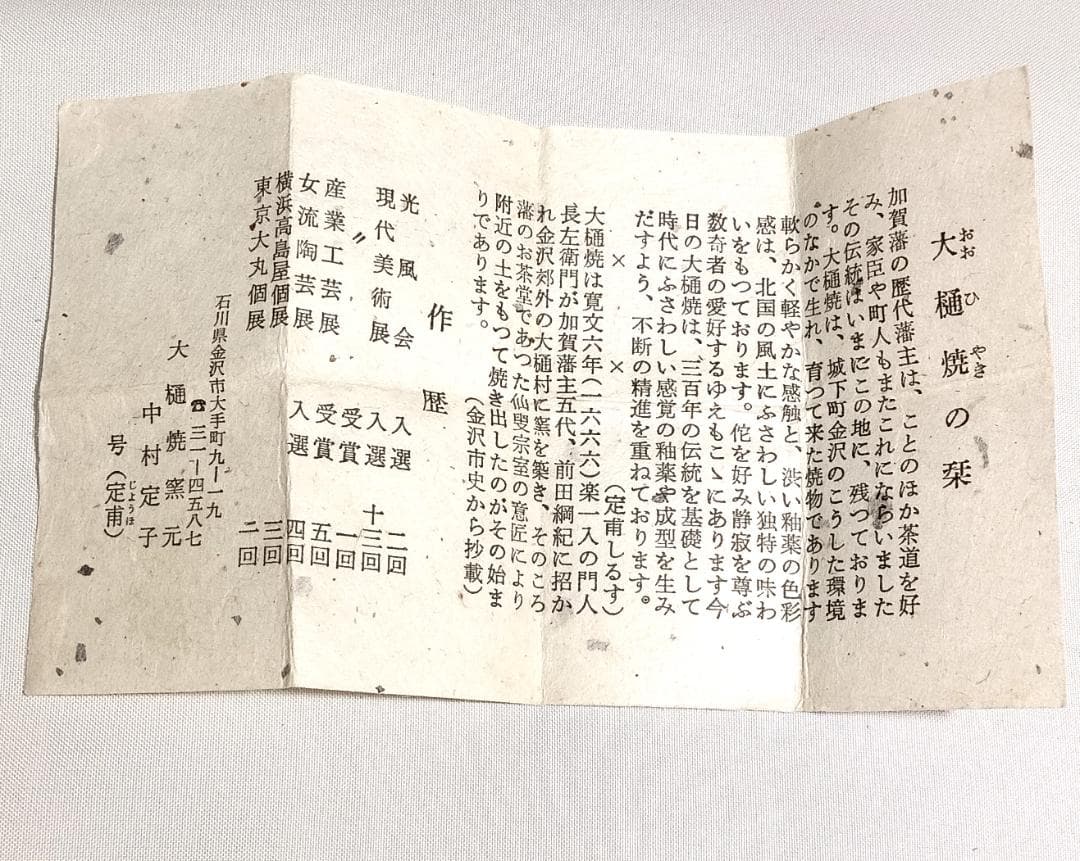 大樋焼の栞
おお ひ やき
加賀藩の歴代藩主は、ことのほか茶道を好
み、家臣や町人もまたこれにならいました
その伝統はいまにこの地に、残っておりま
す。大樋焼は、城下町金沢のこうした環境
のなかで生れ、育つて来た焼物であります
軟らかく軽やかな感触と、渋い釉薬の色彩
感は、北国の風土にふさわしい独特の味わ
いをもつております。侘を好み静寂を尊ぶ
数奇者の愛好するゆえもこゝにあります今
日の大樋焼は、三百年の伝統を基礎として
時代にふさわしい感覚の釉薬や成型を生み
だすよう、不断の精進を重ねております。
× × (定甫しるす)
大樋焼は寛文六年(一六六六)楽一入の門人
長左衛門が加賀藩主五代、前田綱紀に招か
れ金沢郊外の大樋村に窯を築き、そのころ
藩のお茶堂であつた仙叟宗室の意匠により
附近の土をもつて焼き出したのがその始ま
りであります。 (金沢市史から抄載)
作歴
光風会 入選 二回
現代美術展 入選 十三回
〃 受賞 一回
産業工芸展 受賞 五回
女流陶芸展 入選 四回
横浜高島屋個展 三回
東京大丸個展 二回
石川県金沢市大手町九ー一九
☎ 三一ー四五八七
大樋焼窯元
中村定子
号(定甫)
じようほ